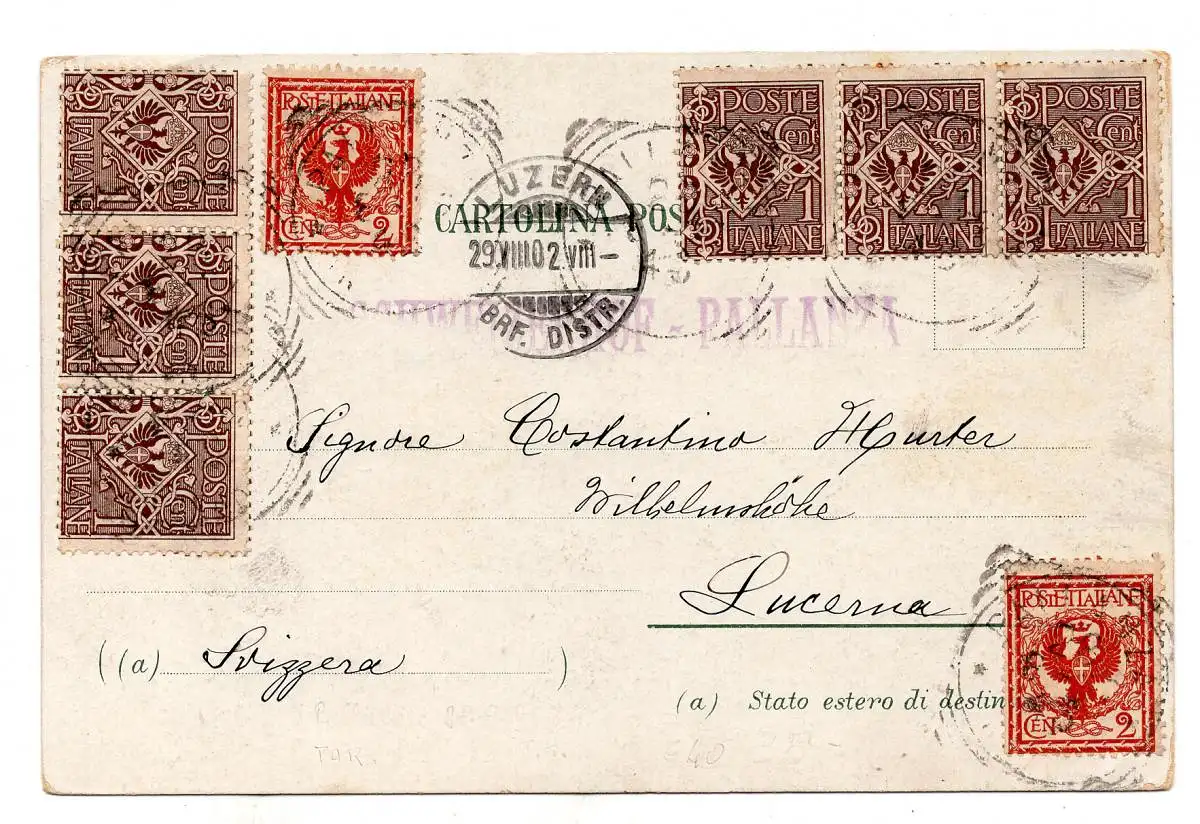 POSTE
Cent 1
ITALIANE
POSTE
Cent 1
ITALIANE
POSTE
Cent 1
ITALIANE
POSTE ITALIANE
CEN 2
POSTE
Cent 1
ITALIANE
POSTE
Cent 1
ITALIANE
POSTE
Cent 1
ITALIANE
LUZERN
29.VIII02.VIII–
BRF. DISTR.
CARTOLINA POS
HOF - PALLANZA
Signore Costantino Murter
Wilhelmshöhe
Lucerna
((a) Svizzera )
(a) Stato estero di destin
POSTE ITALIANE
CEN 2